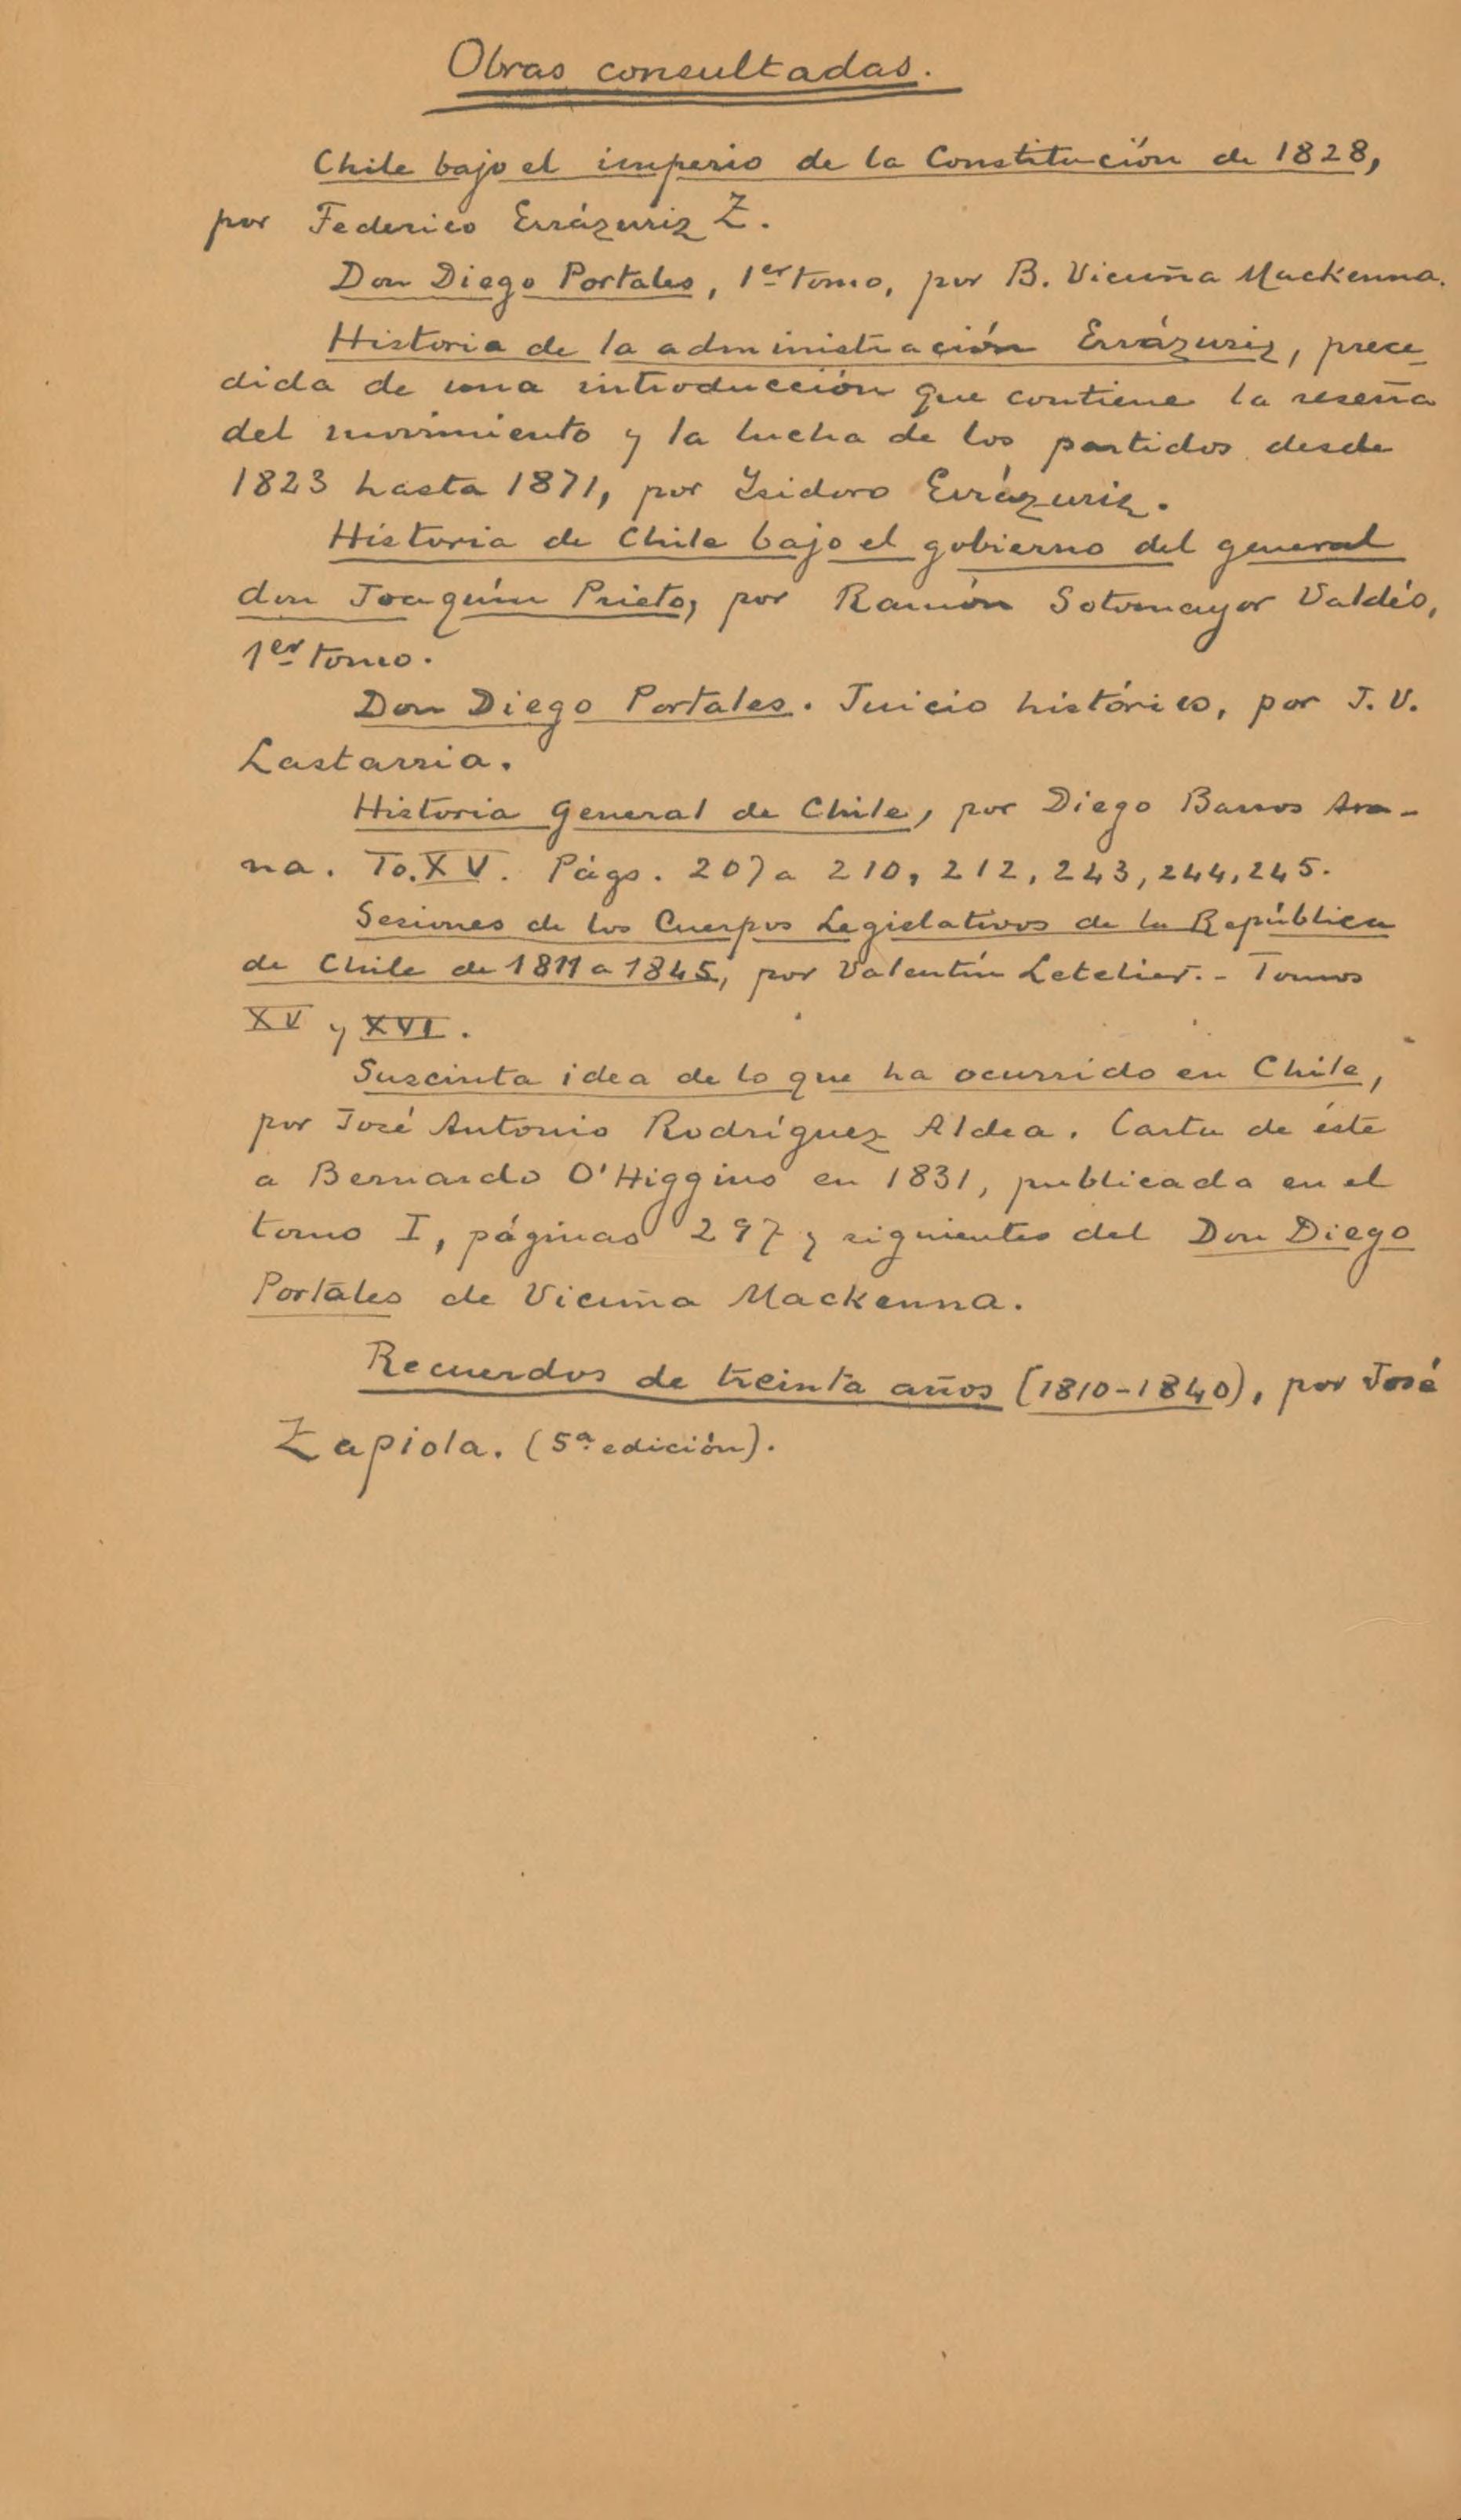 Obras consultadas.
Chile bajo el imperio de la Constitución de 1828,
por Federico Errázuriz Z.
Don Diego Portales, 1er tomo, por B. Vicuña Mackenna.
Historia de la administración Errázuriz, prece_
dida de una introducción que contiene la reseña
del movimiento y la lucha de los partidos desde
1823 hasta 1871, por Isidoro Errázuriz.
Historia de Chile bajo el gobierno del general
don Joaquín Prieto, por Ramón Sotomayor Valdés,
1er tomo.
Don Diego Portales. Juicio histórico, por J. V.
Lastarria.
Historia General de Chile, por Diego Barros Ara-
na. To. XV. Págs. 207 a 210, 212, 243, 244, 245.
Sesiones de los Cuerpos Legislativos de la República
de Chile de 1811 a 1845, por Valentín Letelier.- Tomos
XV y XVI.
Suscinta idea de lo que ha ocurrido en Chile,
por José Antonio Rodríguez Aldea. Carta de éste
a Bernardo O'Higgins en 1831, publicada en el
tomo I, páginas 297 y siguientes del Don Diego
Portales de Vicuña Mackenna.
Recuerdos de treinta años (1810-1840), por José
Zapiola. (5ª edición).